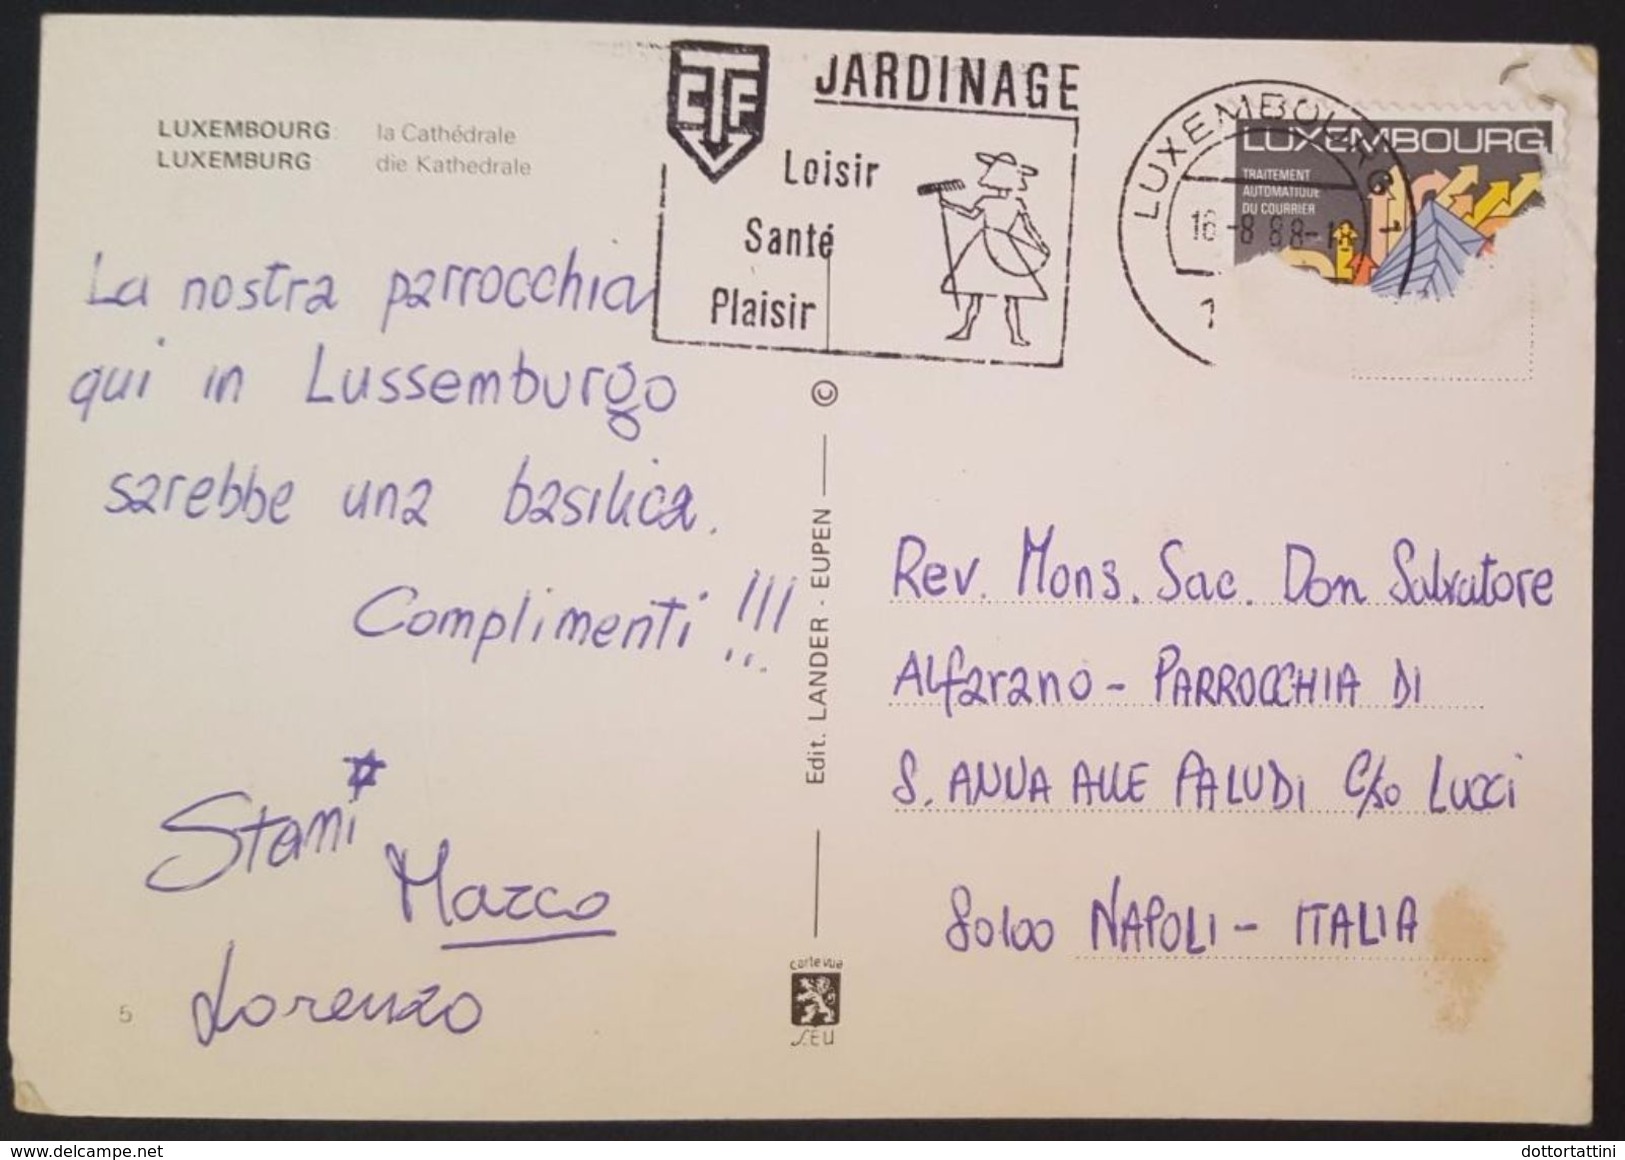 LUXEMBOURG: la Cathédrale
LUXEMBURG die Kathedrale
La nostra parrocchia
qui in Lussemburgo
sarebbe una basilica.
Complimenti !!!
Stani
Marco
Lorenzo
5
JARDINAGE
CTF
Loisir
Santé
Plaisir
LUXEMBOURG 1
16-8 88-
1
LUXEMBOURG
TRAITEMENT
AUTOMATIQUE
DU COURRIER
© Edit. LANDER - EUPEN
carte vue
S.E.U
Rev. Mons. Sac. Don Salvatore
Alfarano - PARROCCHIA DI
S. ANNA ALLE PALUDI c/o Lucci
80100 NAPOLI - ITALIA
delcampe.net
dottortattini